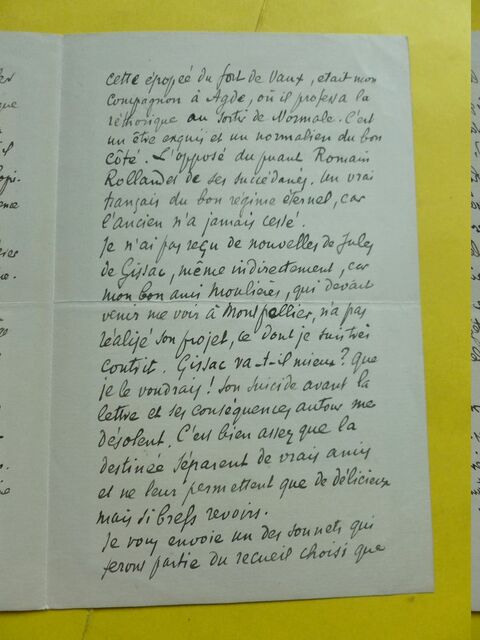 cette épopée du fort de Vaux, était mon
compagnon à Agde, où il professa la
réthorique au sortir de Normale. C'est
un être exquis et un normalien du bon
côté. L'opposé du puant Romain
Rolland et de ses succédanés. Un vrai
français du bon régime éternel, car
l'ancien n'a jamais cessé.
Je n'ai pas reçu de nouvelles de Jules
de Gissac, même indirectement, car
mon bon ami Moulières, qui devait
venir me voir à Montpellier, n'a pas
réalisé son projet, ce dont je suis très
contrit. Gissac va-t-il mieux? Que
je le voudrais! Son suicide avant la
lettre et ses conséquences autour me
désolent. C'est bien assez que la
destinée séparent de vrais amis
et ne leur permettent que de délicieux
mais si brefs revoirs.
Je vous envoie un des sonnets qui
feront partie du recueil choisi que